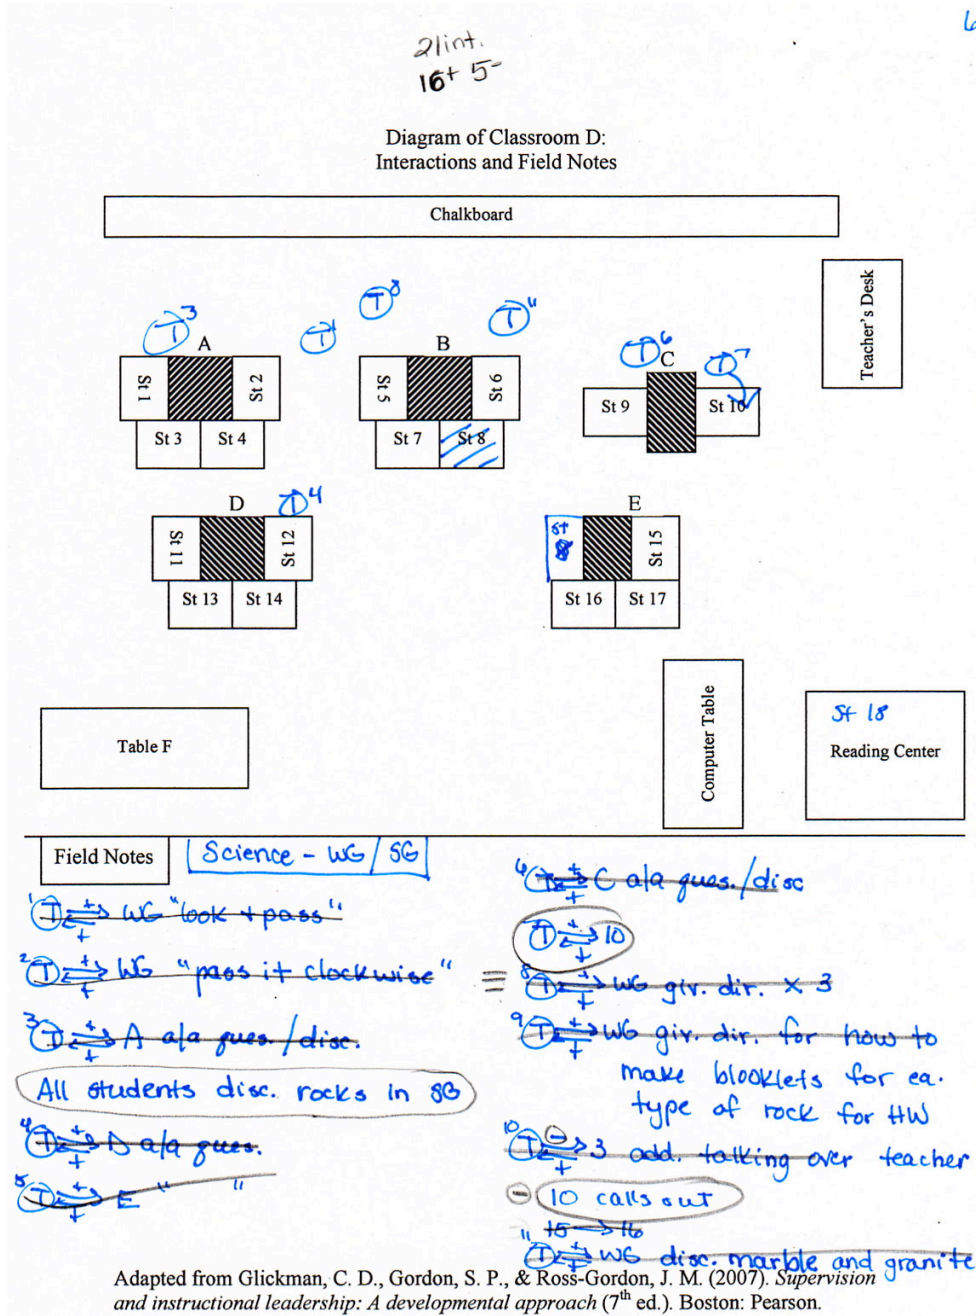 21int.
16+ 5-
Diagram of Classroom D:
Interactions and Field Notes
Chalkboard
Teacher's Desk
T3
T1
T8
T11
T6
T7
A
B
C
St 1
St 2
St 3
St 4
St 5
St 6
St 7
St 8
St 9
St 10
D
T4
E
St 11
St 12
St 13
St 14
St
8
St 15
St 16
St 17
Table F
Computer Table
St 18
Reading Center
Field Notes
Science - WG/SG
1 T + + WG "look + pass"
2 T + + WG "pass it clockwise"
3 T + + A a/a ques./disc.
All students disc. rocks in SG
4 T + + D a/a ques.
5 T + + E " "
6 T + + C a/a ques./disc
7 T + + 10
8 T + + WG giv. dir. x 3
9 T + + WG giv. dir. for how to
make blooklets for ea.
type of rock for HW
10 T - + 3 add. talking over teacher
- 10 calls out
15 → 16
11 T + + WG disc. marble and granite
Adapted from Glickman, C. D., Gordon, S. P., & Ross-Gordon, J. M. (2007). Supervision
and instructional leadership: A developmental approach (7th ed.). Boston: Pearson.